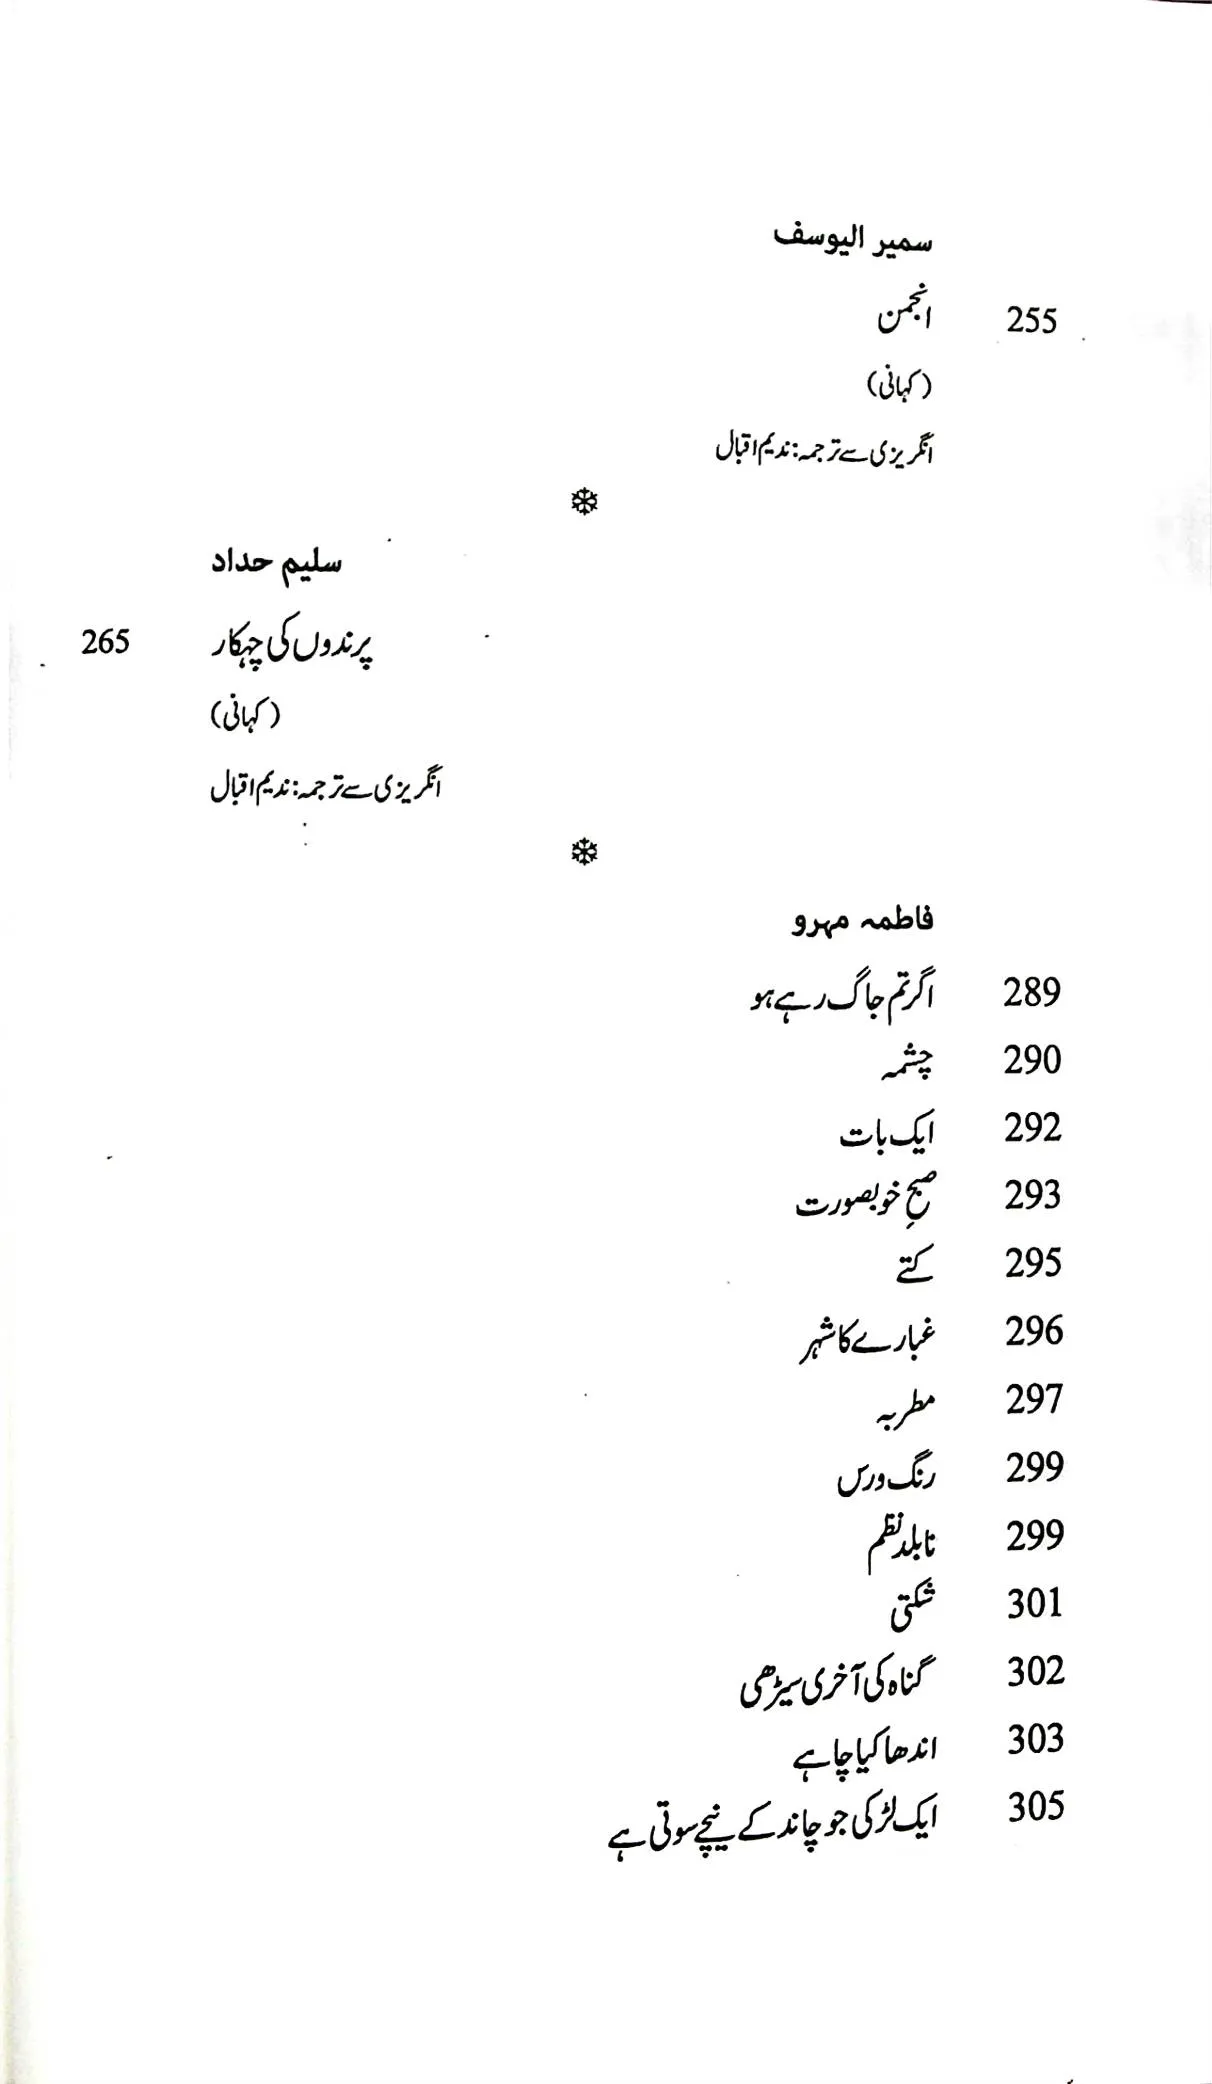 سمیر الیوسف
255 انجمن
(کہانی)
انگریزی سے ترجمہ: ندیم اقبال
سلیم حداد
پرندوں کی چہکار 265
(کہانی)
انگریزی سے ترجمہ: ندیم اقبال
فاطمہ مہرو
289 اگر تم جاگ رہے ہو
290 چشمہ
292 ایک بات
293 صبحِ خوبصورت
295 کتے
296 غبارے کا شہر
297 مطربہ
299 رنگ و رس
299 نابلد نظم
301 شکتی
302 گناہ کی آخری سیڑھی
303 اندھا کیا چاہے
305 ایک لڑکی جو چاند کے نیچے سوتی ہے